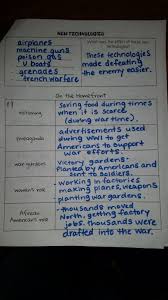 NEW TECHNOLOGIES
airplanes
machine guns
poison gas
U boats
grenades
trench warfare
What were the effect of these new technologies?
These technologies
made defeating
the enemy easier.
On the Homefront
rationing
Saving food during times
when it is scarce
(during war time).
propaganda
advertisements used
during WWI to get
Americans to support
war efforts.
war gardens
victory gardens-
Planted by Americans and
sent to soldiers.
women's role
-working in factories
making planes, weapons
planting war gardens.
African
American's role
-thousands moved
North, getting factory
jobs. thousands were
drafted into the war.